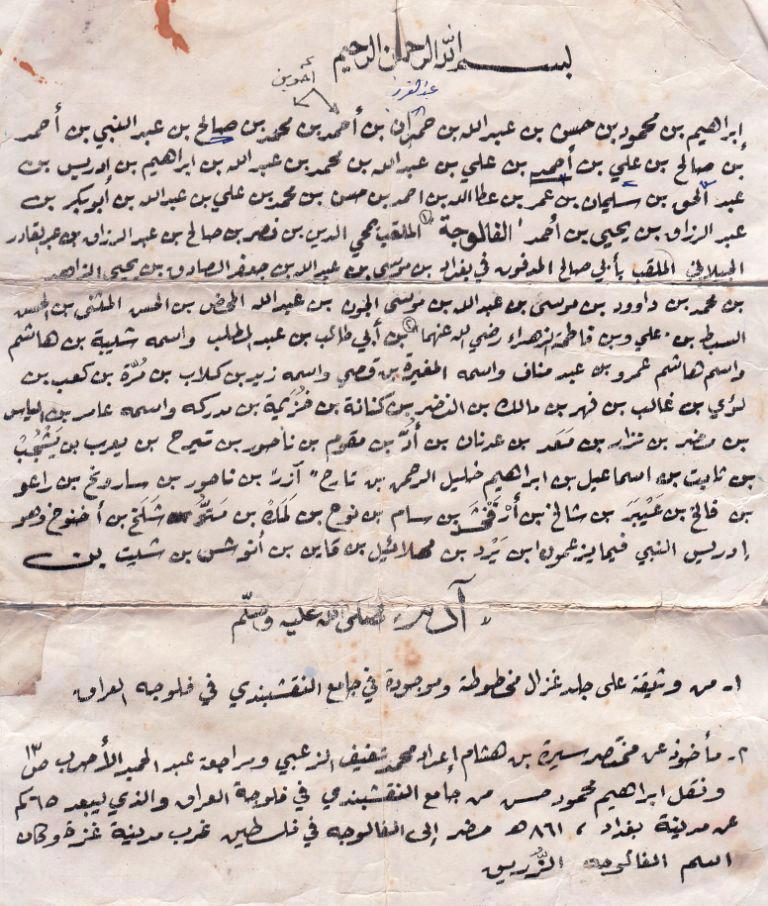 بسم الله الرحمن الرحيم
أخوين
عبد القرر
إبراهيم بن محمود بن حسن بن عبد الله بن حمدان بن أحمد بن محمد بن صالح بن عبد الغني بن أحمد
بن صالح بن علي بن أحمد بن علي بن عبد الله بن محمد بن عبد الله بن ابراهيم بن إدريس بن
عبد الحق بن سليمان بن عمر بن عطا الله بن احمد بن حسن بن محمد بن علي بن عبد الله بن أبو بكر بن
عبد الرزاق بن يحيى بن أحمد "الفالوجة" (١) الملقب بمحي الدين بن نصر بن صالح بن عبد الرزاق بن عبد القادر
الجيلاني الملقب بأبي صالح المدفون في بغداد بن موسى بن عبد الله بن جعفر الصادق بن يحيى الزاهد
بن محمد بن داوود بن موسى بن عبد الله بن موسى الجون بن عبد الله المحض بن الحسن المثنى بن الحسن
السبط بن علي وبن فاطمة الزهراء رضي الله عنهما (٢) بن أبي طالب بن عبد المطلب واسمه شيبة بن هاشم
واسم هاشم عمرو بن عبد مناف واسمه المغيرة بن قصي واسمه زيد بن كلاب بن مُرّة بن كعب بن
لؤي بن غالب بن فهر بن مالك بن النضر بن كنانة بن خُزيمة بن مدركه واسمه عامر بن الياس
بن مضر بن نزار بن مَعَد بن عدنان بن أُدّ بن مقوم بن ناحور بن تيرح بن يعرب بن يَشْجُبْ
بن ثابت بن اسماعيل بن ابراهيم خليل الرحمن بن تارح "آزر" بن ناحور بن ساروغ بن راعو
بن فالخ بن عَيْبَر بن شالخ بن أرْفَخْشَذ بن سام بن نوح بن لَمَكْ بن مَتُّو شَلَخ بن أخنوخ وهو
إدريس النبي فيما يزعمون ابن يَرْد بن مهلائيل بن قاين بن أنوش بن شيث بن
"آدم" صلى الله عليه وسلّم
١- من وثيقة على جلد غزال مخطوطة وموجودة في جامع النقشبندي في فلوجه العراق
٢- مأخوذه عن مختصر سيرة بن هشام إعداد محمد عفيف الزعبي ومراجعة عبد الحميد الأحدب ص ١٣
ونقل ابراهيم محمود حسن من جامع النقشبندي في فلوجة العراق والذي يبعد ٦٥ كم
عن مدينة بغداد ، ٨٦١ هـ حضر إلى الفالوجه في فلسطين غرب مدينة غزة وكان
اسم الفالوجه الزُّريق